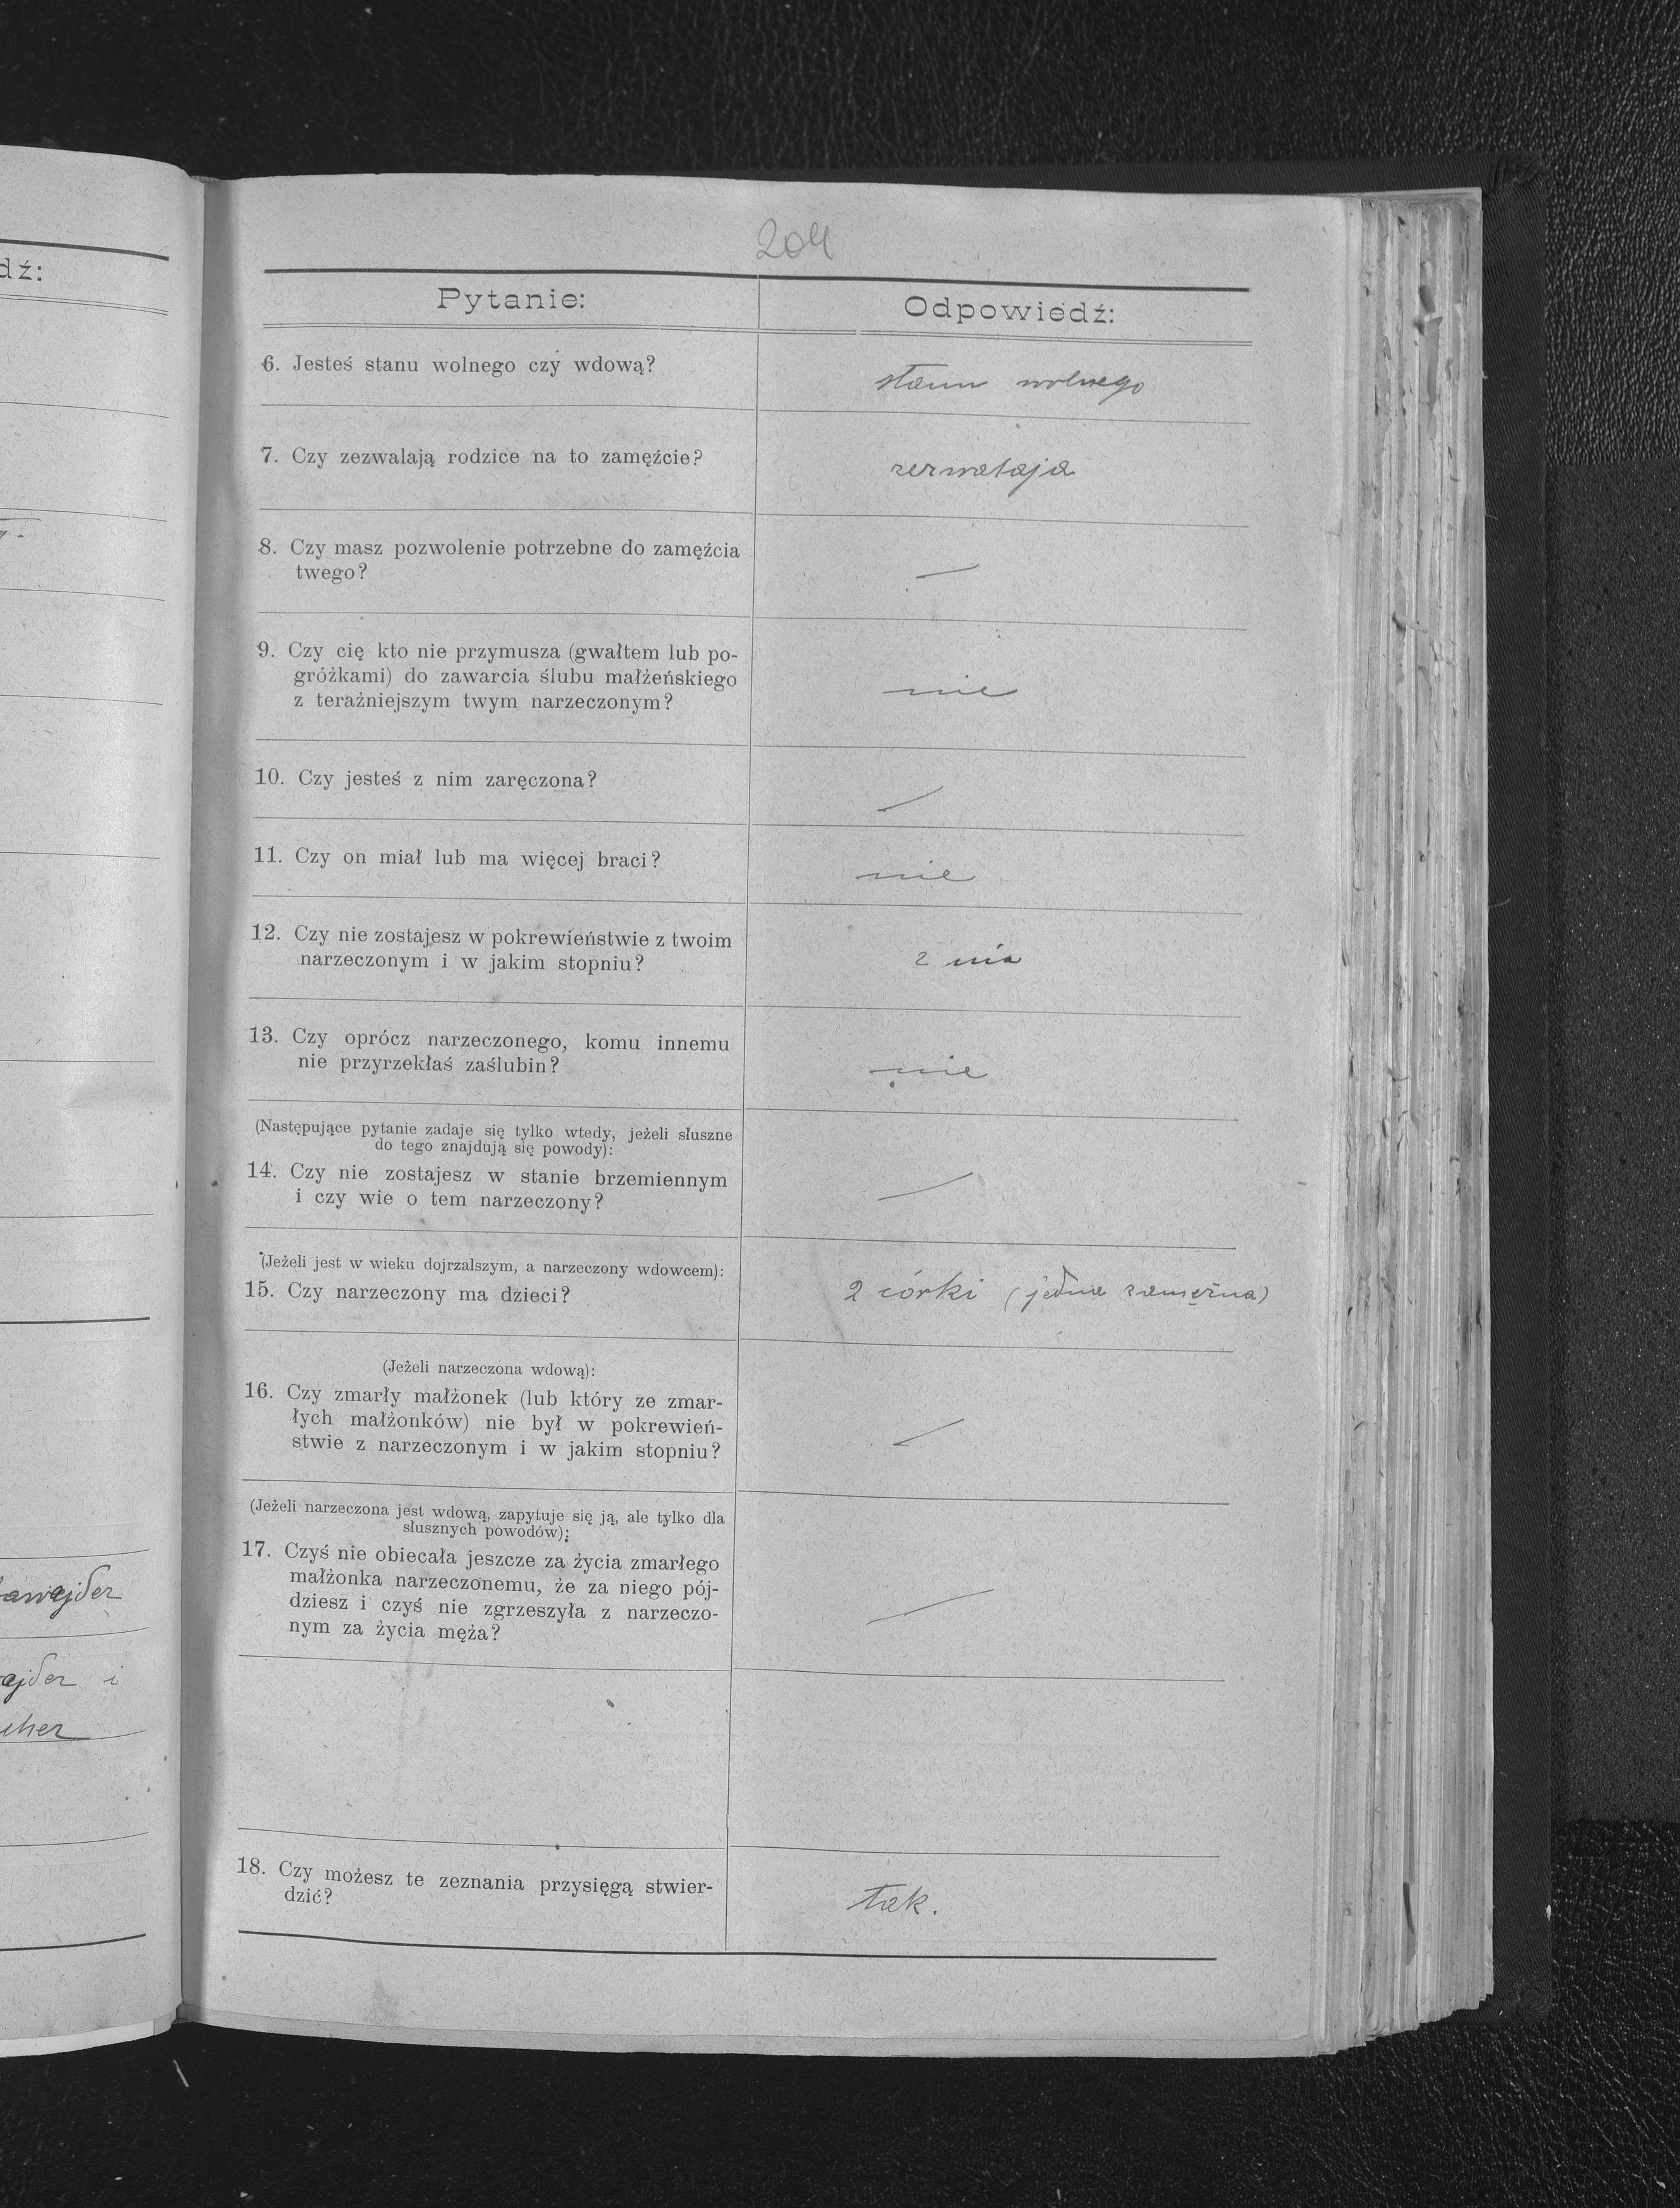 204
dź:
Pytanie:
Odpowiedź:
6. Jesteś stanu wolnego czy wdową?
stanu wolnego
7. Czy zezwalają rodzice na to zamęźcie?
8. Czy masz pozwolenie potrzebne do zamęźcia
twego?
—
9. Czy cię kto nie przymusza (gwałtem lub po-
gróżkami) do zawarcia ślubu małżeńskiego
z teraźniejszym twym narzeczonym?
nie
10. Czy jesteś z nim zaręczona?
—
11. Czy on miał lub ma więcej braci?
nie
12. Czy nie zostajesz w pokrewieństwie z twoim
narzeczonym i w jakim stopniu?
13. Czy oprócz narzeczonego, komu innemu
nie przyrzekłaś zaślubin?
nie
(Następujące pytanie zadaje się tylko wtedy, jeżeli słuszne
do tego znajdują się powody):
14. Czy nie zostajesz w stanie brzemiennym
i czy wie o tem narzeczony?
—
(Jeżeli jest w wieku dojrzalszym, a narzeczony wdowcem):
15. Czy narzeczony ma dzieci?
2 córki (jedna zamężna)
(Jeżeli narzeczona wdową):
16. Czy zmarły małżonek (lub który ze zmar-
łych małżonków) nie był w pokrewień-
stwie z narzeczonym i w jakim stopniu?
—
(Jeżeli narzeczona jest wdową, zapytuje się ją, ale tylko dla
słusznych powodów):
17. Czyś nie obiecała jeszcze za życia zmarłego
małżonka narzeczonemu, że za niego pój-
dziesz i czyś nie zgrzeszyła z narzeczo-
nym za życia męża?
—
18. Czy możesz te zeznania przysięgą stwier-
dzić?
tak.
awajder
ajder i
cher